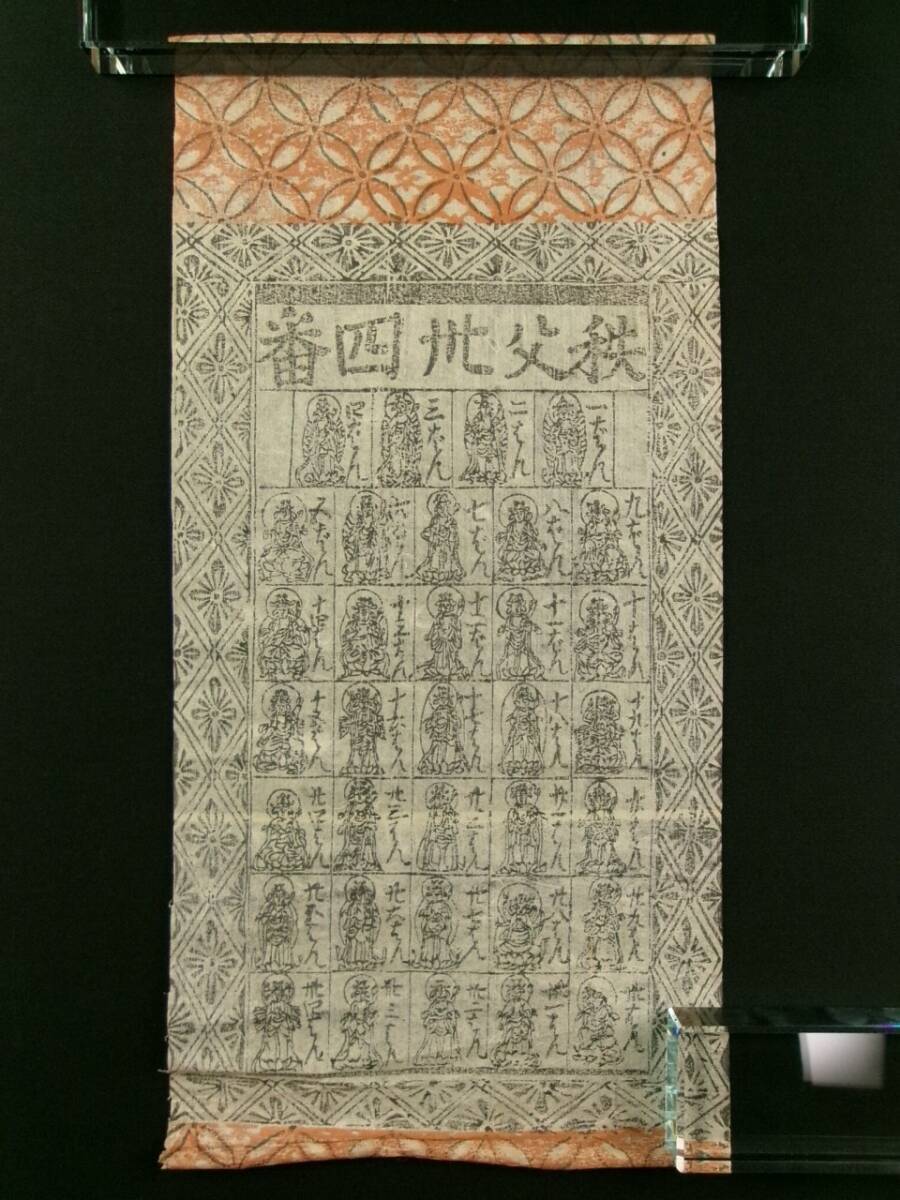 秩父卅四番
一ばん
二ばん
三ばん
四ばん
五ばん
六ばん
七ばん
八ばん
九ばん
十ばん
十一ばん
十二ばん
十三ばん
十四ばん
十五ばん
十六ばん
十七ばん
十八ばん
十九ばん
廿ばん
廿一ばん
廿二ばん
廿三ばん
廿四ばん
廿五ばん
廿六ばん
廿七ばん
廿八ばん
廿九ばん
卅ばん
卅一ばん
卅二ばん
卅三ばん
卅四ばん